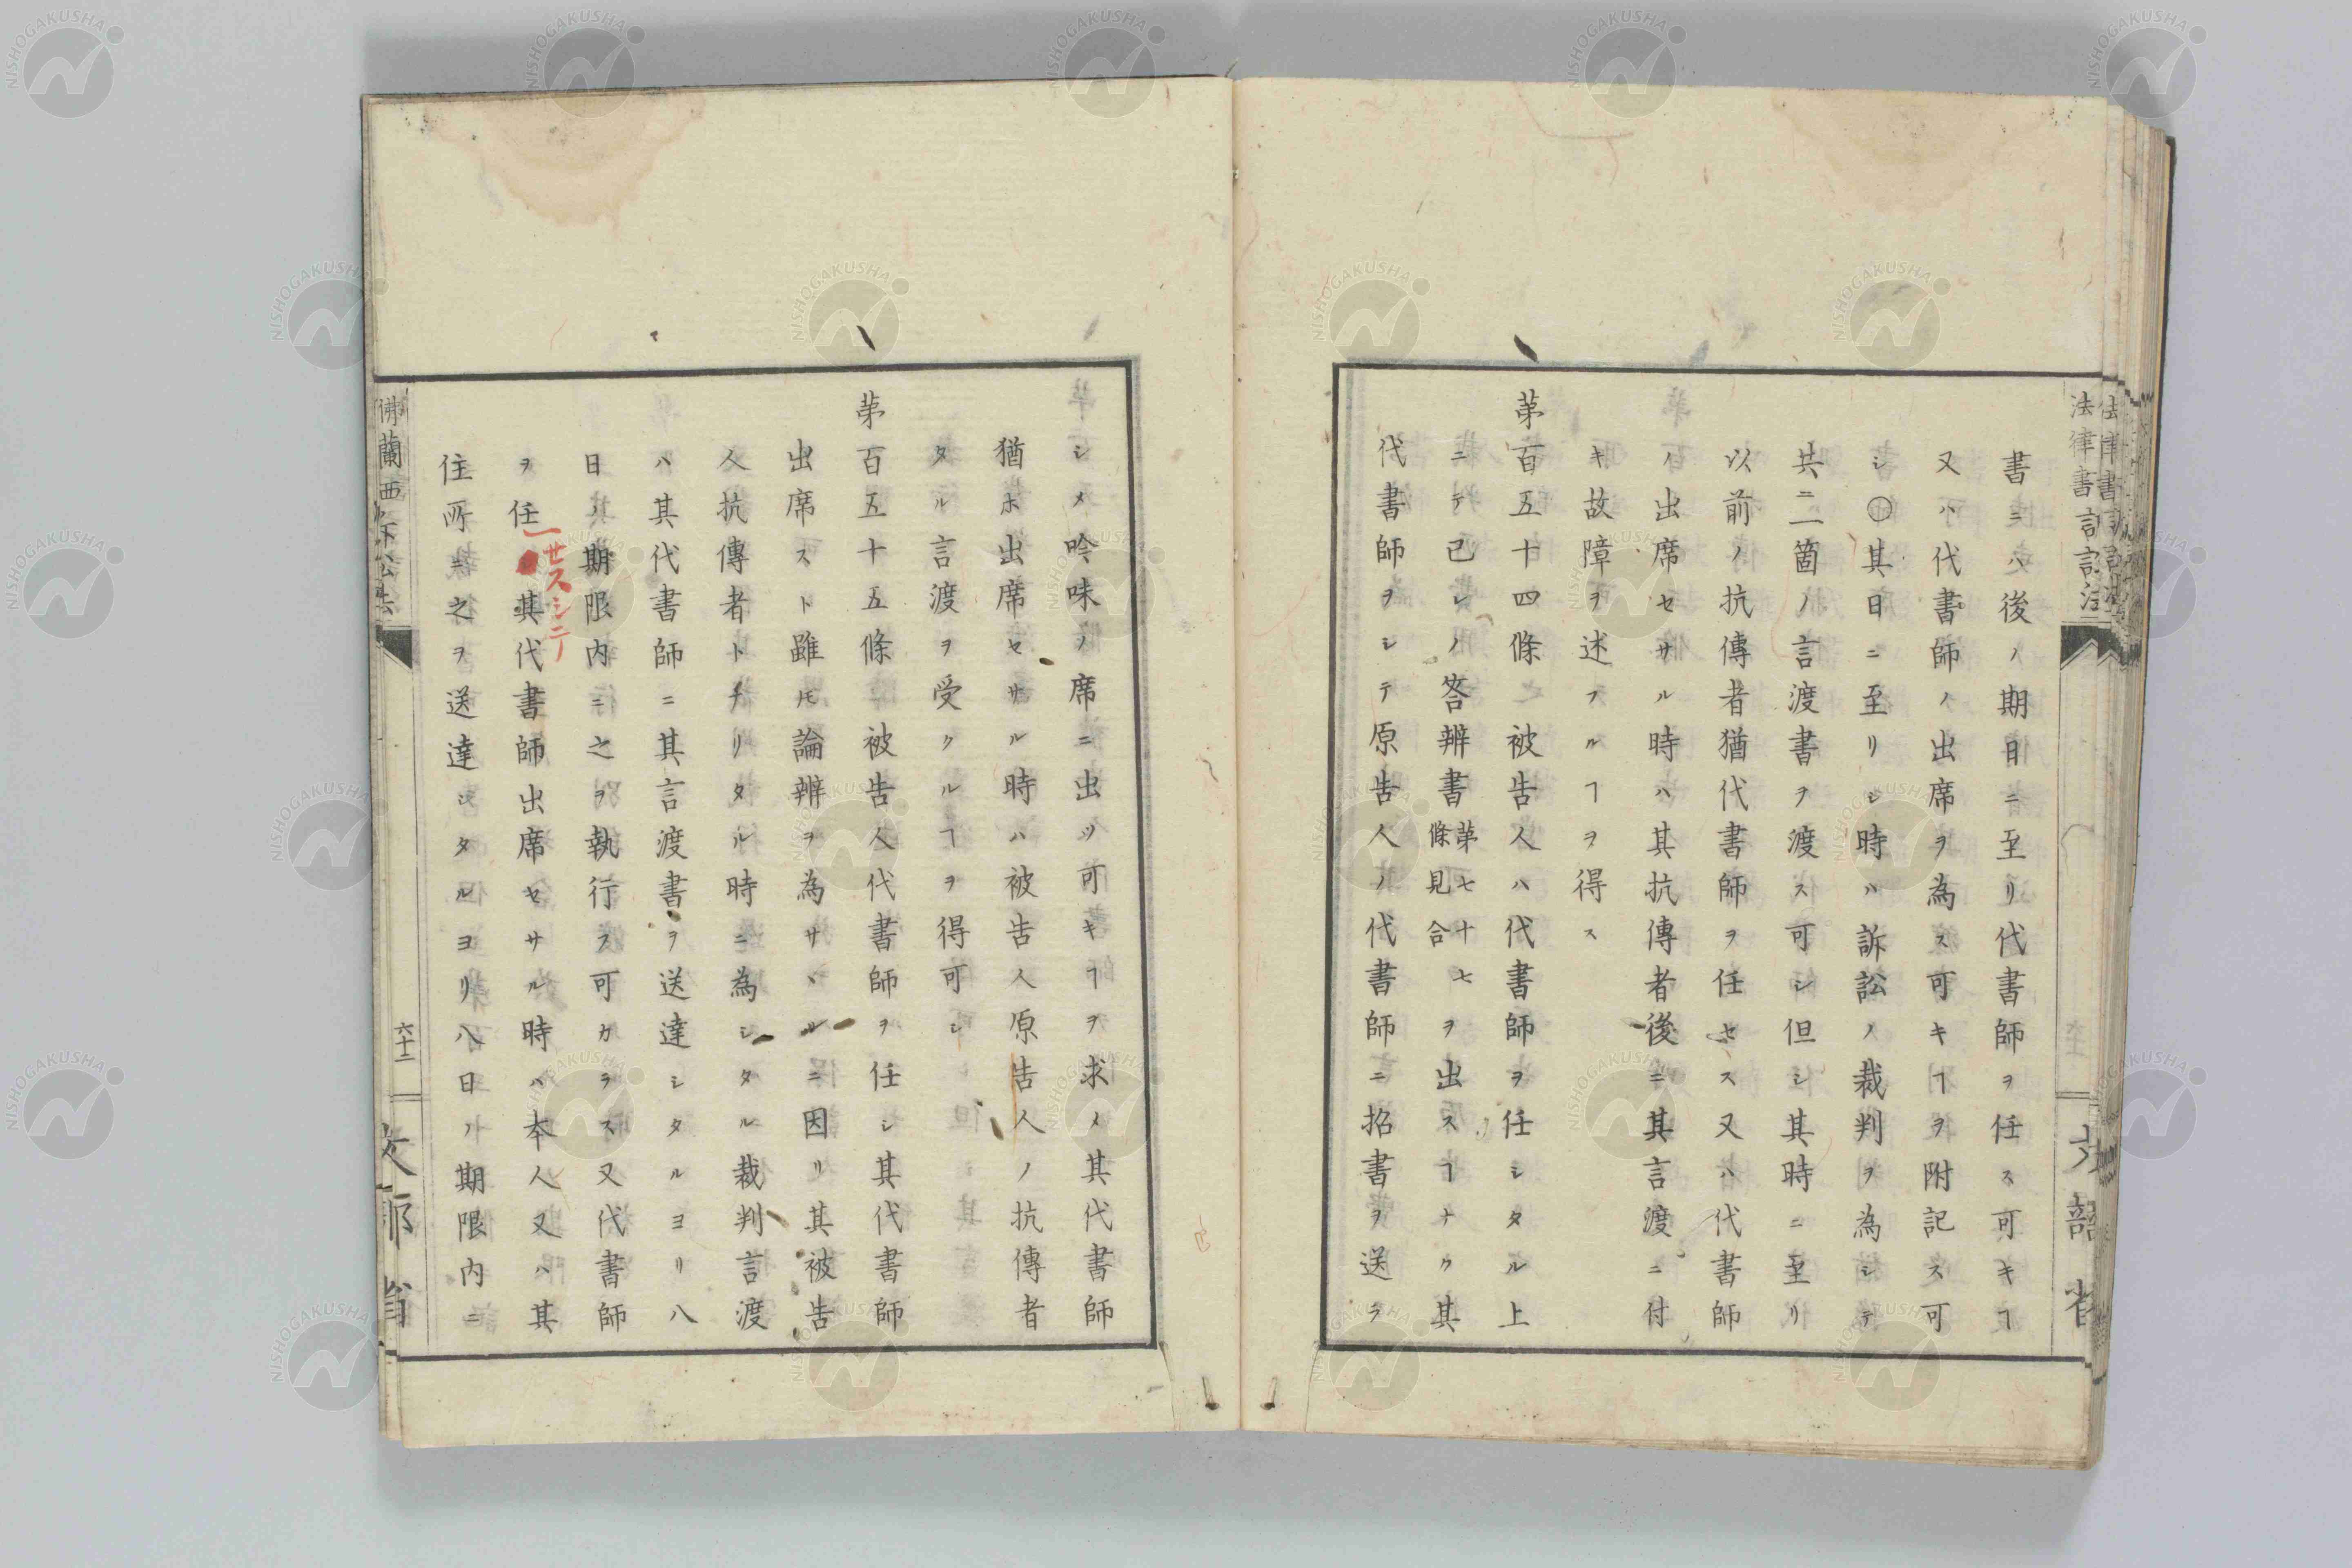 書ニハ後ノ期日ニ至リ代書師ヲ任ス可キヿ
又ハ代書師ノ出席ヲ為ス可キヿヲ附記ス可
シ○其日ニ至リシ時ハ訴訟ノ裁判ヲ為シテ
共ニ二箇ノ言渡書ヲ渡ス可シ但シ其時ニ至リ
以前ノ抗傳者猶代書師ヲ任セス又ハ代書師
ノ出席セサル時ハ其抗傳者後ニ其言渡ニ付
キ故障ヲ述フルヿヲ得ス
苐百五十四條 被告人ハ代書師ヲ任シタル上
ニテ己レノ答辨書苐七十七條見合ヲ出スヿナク其
代書師ヲシテ原告人ノ代書師ニ招書ヲ送ラ
シメ吟味ノ席ニ出ツ可キヿヲ求メ其代書師
猶ホ出席セサル時ハ被告人原告人ノ抗傳者
タル言渡ヲ受クルヿヲ得可シ
苐百五十五條 被告人代書師ヲ任シ其代書師
出席スト雖𪜈論辨ヲ為サヽルニ因リ其被告
人抗傳者トナリタル時ニ為シタル裁判言渡
ハ其代書師ニ其言渡書ヲ送達シタルヨリ八
日ノ期限内ニ之ヲ執行ス可カラス又代書師
ヲ任セスシテ其代書師出席セサル時ハ本人又ハ其
住所ニ之ヲ送達シタルヨリ八日ノ期限内ニ
佛蘭西
六十二
文部省